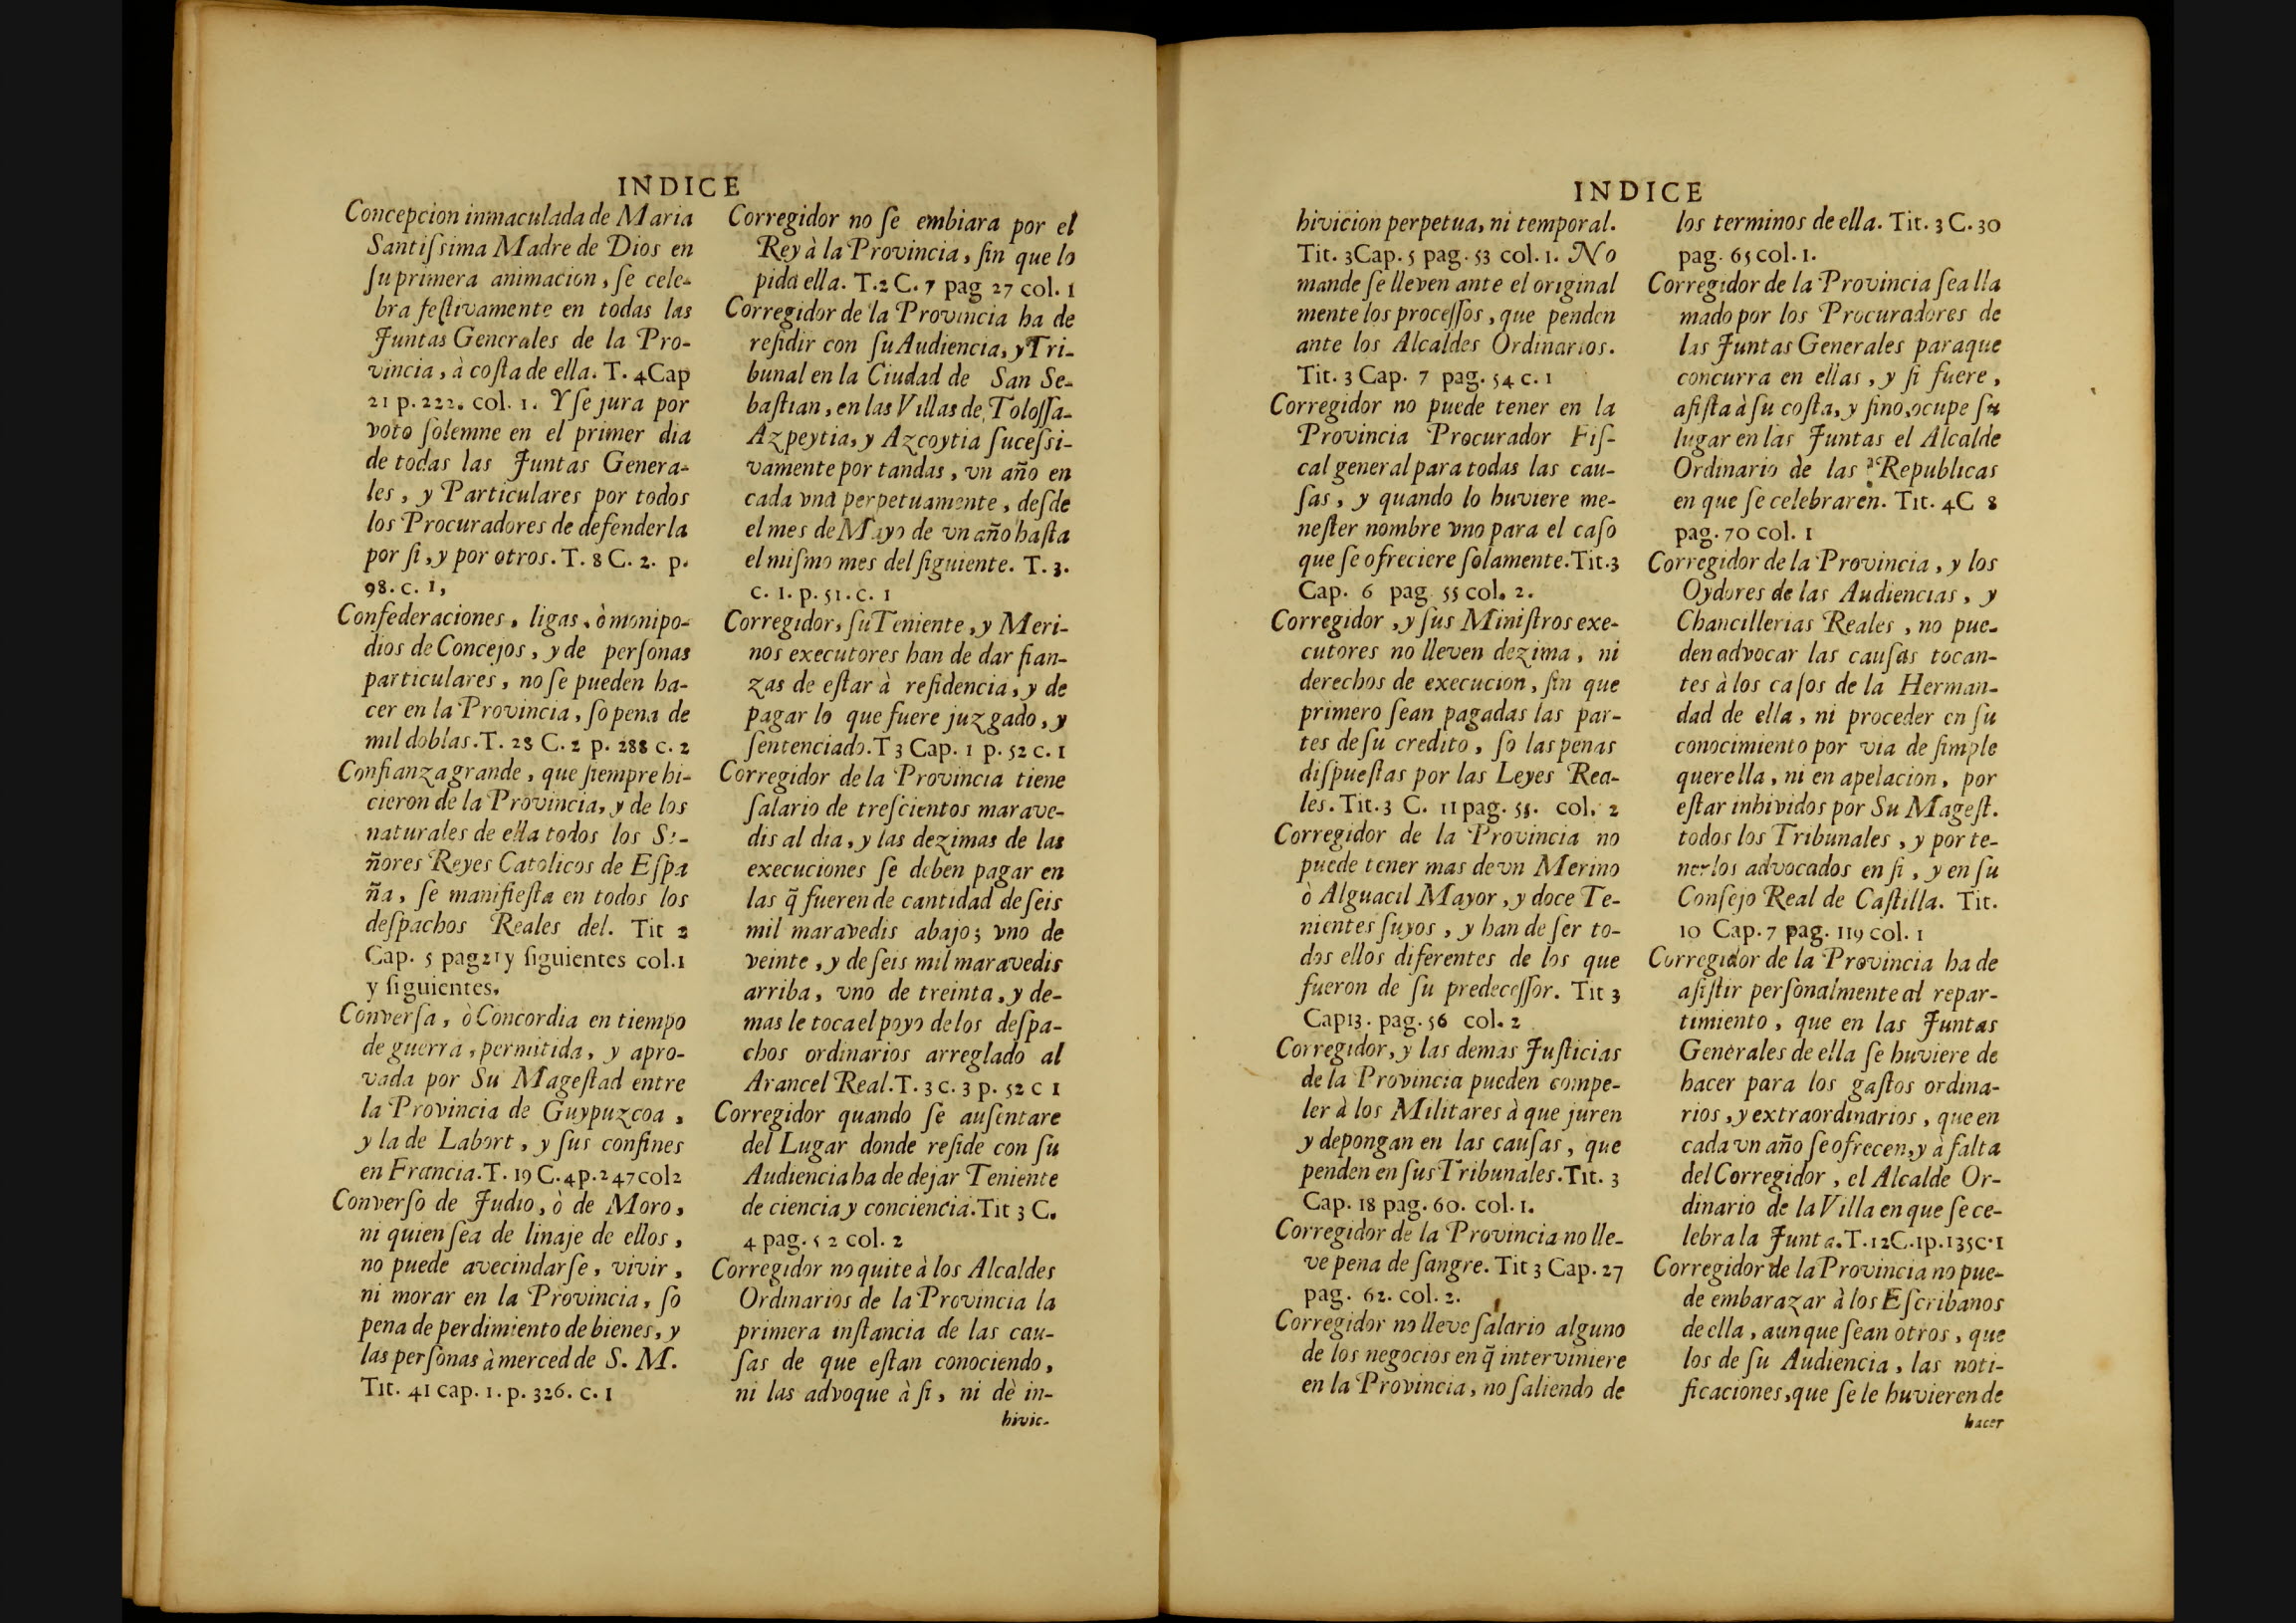 INDICE
Concepcion inmaculada de Maria
Santiſsima Madre de Dios en
ſu primera animacion, ſe cele-
bra feſtivamente en todas las
Juntas Generales de la Pro-
vincia, à coſta de ella. T. 4Cap
21 p. 222. col. 1. Y ſe jura por
voto ſolemne en el primer dia
de todas las Juntas Genera-
les, y Particulares por todos
los Procuradores de defenderla
por ſi, y por otros. T. 8 C. 2. p.
98. c. 1,
Confederaciones, ligas, ò monipo-
dios de Concejos, y de perſonas
particulares, no ſe pueden ha-
cer en la Provincia, ſo pena de
mil doblas. T. 28 C. 2 p. 288 c. 2
Confianza grande, que ſiempre hi-
cieron de la Provincia, y de los
naturales de ella todos los Se-
ñores Reyes Catolicos de Eſpa
ña, ſe manifieſta en todos los
deſpachos Reales del. Tit 2
Cap. 5 pag21y ſiguientes col.1
y ſiguientes.
Converſa, ò Concordia en tiempo
de guerra, permitida, y apro-
vada por Su Mageſtad entre
la Provincia de Guypuzcoa,
y la de Labort, y ſus confines
en Francia. T. 19 C. 4p. 247col2
Converſo de Judio, ò de Moro,
ni quien ſea de linaje de ellos,
no puede avecindarſe, vivir,
ni morar en la Provincia, ſo
pena de perdimiento de bienes, y
las perſonas à merced de S. M.
Tit. 41 cap. 1. p. 326. c. 1
Corregidor no ſe embiara por el
Rey à la Provincia, ſin que lo
pida ella. T.2 C. 7 pag 27 col. 1
Corregidor de la Provincia ha de
reſidir con ſu Audiencia, y Tri-
bunal en la Ciudad de San Se-
baſtian, en las Villas de Toloſſa-
Azpeytia, y Azcoytia ſuceſsi-
vamente por tandas, vn año en
cada vna perpetuamente, deſde
el mes de Mayo de vn año haſta
el miſmo mes del ſiguiente. T. 3.
c. 1. p. 51. c. 1
Corregidor, ſu Teniente, y Meri-
nos executores han de dar fian-
zas de eſtar à reſidencia, y de
pagar lo que fuere juzgado, y
ſentenciado. T 3 Cap. 1 p. 52 c. 1
Corregidor de la Provincia tiene
ſalario de treſcientos marave-
dis al dia, y las dezimas de las
execuciones ſe deben pagar en
las q̃ fueren de cantidad de ſeis
mil maravedis abajo; vno de
veinte, y de ſeis mil maravedis
arriba, vno de treinta, y de-
mas le toca el poyo de los deſpa-
chos ordinarios arreglado al
Arancel Real. T. 3 c. 3 p. 52 c 1
Corregidor quando ſe auſentare
del Lugar donde reſide con ſu
Audiencia ha de dejar Teniente
de ciencia y conciencia. Tit 3 C.
4 pag. 52 col. 2
Corregidor no quite à los Alcaldes
Ordinarios de la Provincia la
primera inſtancia de las cau-
ſas de que eſtan conociendo,
ni las advoque à ſi, ni dè in-
hivic-
INDICE
hivicion perpetua, ni temporal.
Tit. 3Cap. 5 pag. 53 col. 1. No
mande ſe lleven ante el original
mente los proceſſos, que penden
ante los Alcaldes Ordinarios.
Tit. 3 Cap. 7 pag. 54 c. 1
Corregidor no puede tener en la
Provincia Procurador Fiſ-
cal general para todas las cau-
ſas, y quando lo huviere me-
neſter nombre vno para el caſo
que ſe ofreciere ſolamente. Tit.3
Cap. 6 pag 55 col. 2.
Corregidor, y ſus Miniſtros exe-
cutores no lleven dezima, ni
derechos de execucion, ſin que
primero ſean pagadas las par-
tes de ſu credito, ſo las penas
diſpueſtas por las Leyes Rea-
les. Tit. 3 C. 11 pag. 55. col. 2
Corregidor de la Provincia no
puede tener mas de vn Merino
ò Alguacil Mayor, y doce Te-
nientes ſuyos, y han de ſer to-
dos ellos diferentes de los que
fueron de ſu predeceſſor. Tit 3
Cap13. pag. 56 col. 2
Corregidor, y las demas Juſticias
de la Provincia pueden compe-
ler à los Militares à que juren
y depongan en las cauſas, que
penden en ſus Tribunales. Tit. 3
Cap. 18 pag. 60. col. 1.
Corregidor de la Provincia no lle-
ve pena de ſangre. Tit 3 Cap. 27
pag. 62. col. 2.
Corregidor no lleve ſalario alguno
de los negocios en q̃ interviniere
en la Provincia, no ſaliendo de
los terminos de ella. Tit. 3 C. 30
pag. 65 col. 1.
Corregidor de la Provincia ſea lla
mado por los Procuradores de
las Juntas Generales paraque
concurra en ellas, y ſi fuere,
aſiſta à ſu coſta, y ſino, ocupe ſu
lugar en las Juntas el Alcalde
Ordinario de las Republicas
en que ſe celebraren. Tit. 4C 8
pag. 70 col. 1
Corregidor de la Provincia, y los
Oydores de las Audiencias, y
Chancillerias Reales, no pue-
den advocar las cauſas tocan-
tes à los caſos de la Herman-
dad de ella, ni proceder en ſu
conocimiento por via de ſimple
querella, ni en apelacion, por
eſtar inhividos por Su Mageſt.
todos los Tribunales, y por te-
nerlos advocados en ſi, y en ſu
Conſejo Real de Caſtilla. Tit.
10 Cap. 7 pag. 119 col. 1
Corregidor de la Provincia ha de
aſiſtir perſonalmente al repar-
timiento, que en las Juntas
Generales de ella ſe huviere de
hacer para los gaſtos ordina-
rios, y extraordinarios, que en
cada vn año ſe ofrecen, y à falta
del Corregidor, el Alcalde Or-
dinario de la Villa en que ſe ce-
lebra la Junta. T. 12C. 1p. 135c. 1
Corregidor de la Provincia no pue-
de embarazar à los Eſcribanos
de ella, aunque ſean otros, que
los de ſu Audiencia, las noti-
ficaciones, que ſe le huvieren de
hacer